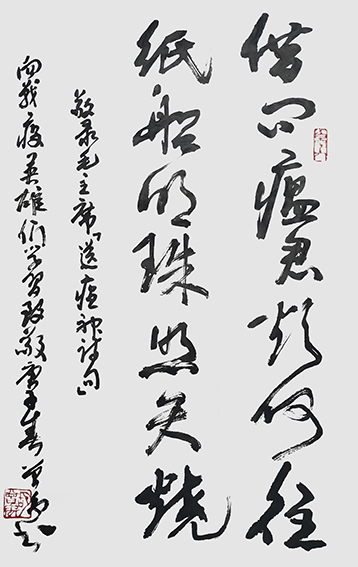 借问瘟君欲何往
纸船明烛照天烧
敬录毛主席「送瘟神诗句」
向战疫英雄们学习致敬庚子春